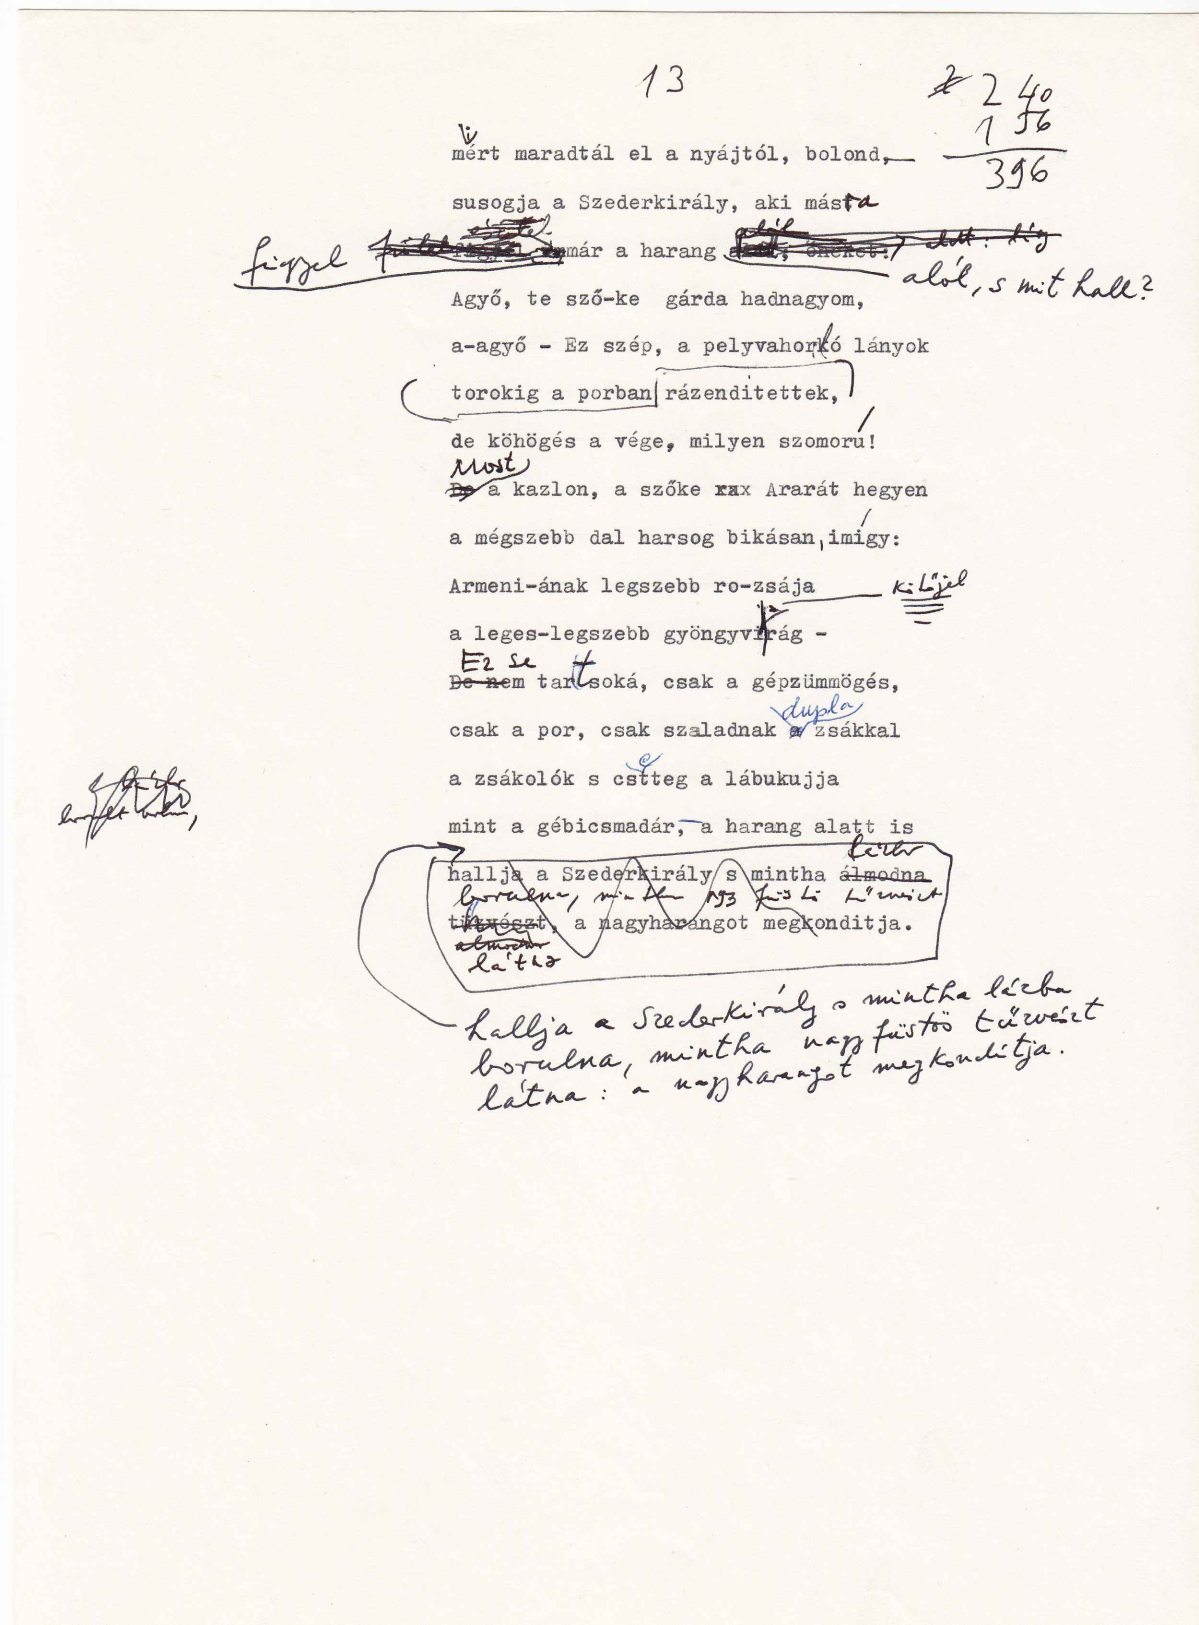 13
2 40
1 56
396
i
mért maradtál el a nyájtól, bolond,
susogja a Szederkirály, aki másra
figyel immár a harang
alól, s mit hall?
Agyő, te sző-ke gárda hadnagyom,
a-agyő - Ez szép, a pelyvahorkó lányok
torokig a porban rázenditettek,
de köhögés a vége, milyen szomorú!
Most
De a kazlon, a szőke rax Ararát hegyen
a mégszebb dal harsog bikásan, imígy:
Armeni-ának legszebb ro-zsája
kötőjel
a leges-legszebb gyöngyvirág -
Ez se
De nem tart soká, csak a gépzümmögés,
dupla
csak a por, csak szaladnak a zsákkal
e
a zsákolók s csetteg a lábukujja
mint a gébicsmadár, a harang alatt is
lázba
hallja a Szederkirály s mintha álmodna
borulna, mintha nagy füstös tűzvészt
tüzvészt, a nagyharangot megkonditja.
álmodna
látna
hallja a Szederkirály s mintha lázba
borulna, mintha nagy füstös tűzvészt
látna: a nagyharangot megkondítja.